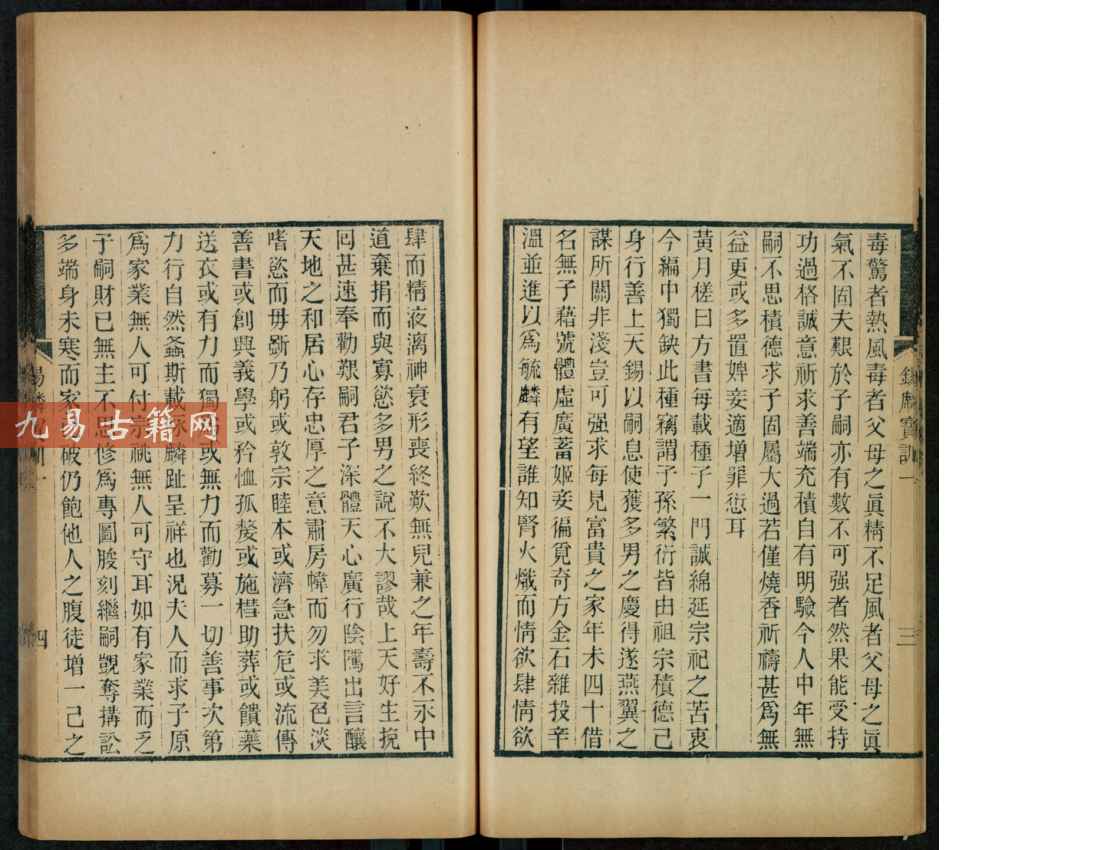 毒驚者熱風毒者父母之眞精不足風者父母之眞
氣不固夫艱於子嗣亦有數不可強者然果能受持
功過格誠意祈求善端充積自有明驗今人中年無
嗣不思積德求子固屬大過若僅燒香祈禱甚爲無
益更或多置婢妾適增罪愆耳
黃月槎曰方書每載種子一門誠綿延宗祀之苦衷
今編中獨缺此種竊謂子孫繁衍皆由祖宗積德己
身行善上天錫以嗣息使獲多男之慶得遂燕翼之
謀所關非淺豈可强求每見富貴之家年未四十借
名無子藉號體虛廣蓄姬妾徧覓奇方金石雜投辛
溫並進以爲毓麟有望誰知腎火熾而情欲肆情欲
錫麟寶訓一
三
肆而精液漓神衰形喪終歎無兒兼之年壽不永中
道棄捐而與寡慾多男之說不大謬哉上天好生挽
囘甚速奉勸艱嗣君子深體天心廣行陰騭出言釀
天地之和居心存忠厚之意肅房幃而勿求美色淡
嗜慾而毋斲乃躬或敦宗睦本或濟急扶危或流傳
善書或創興義學或矜恤孤嫠或施槥助葬或饋藥
送衣或有力而獨或無力而勸募一切善事次第
力行自然螽斯載麟趾呈祥也況夫人而求子原
爲家業無人可付宗祧無人可守耳如有家業而乏
子嗣財已無主不思修爲專圖朘刻繼嗣覬奪搆訟
多端身未寒而家破仍飽他人之腹徒增一己之
四
九易古籍网